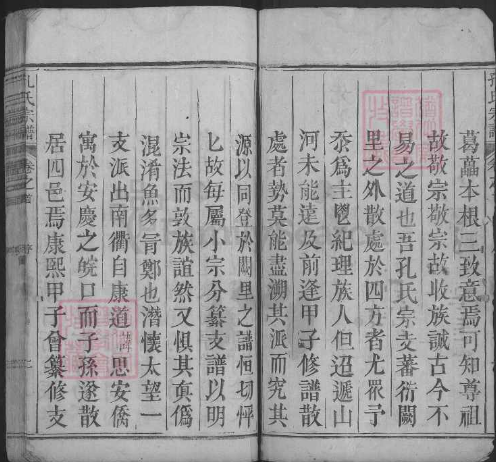 葛藟本根三致意焉可知尊祖
故敬宗敬宗故收族誠古今不
易之道也吾孔氏宗支蕃衍闕
里之外散處於四方者尤眾予
忝為主鬯紀理族人但迢遞山
河未能達及前逢甲子修譜散
處者勢莫能盡溯其派而究其
源以同登於闕里之譜恒切怦
匕故每屬小宗分纂支譜以明
宗法而敦族誼然又惧其真偽
混淆魚名冐鄭也潛懷太望一
支派出南衢自康道諱思安僑
寓於安慶之皖口而子孫遂散
居四邑焉康熙甲子會纂修支
孔氏宗譜
卷之首